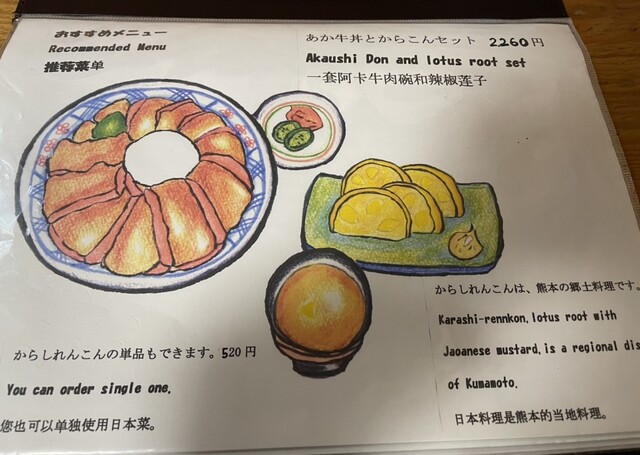 おすすめメニュー
Recommended Menu
推荐菜单
あか牛丼とからこんセット 2260円
Akaushi Don and lotus root set
一套阿卡牛肉碗和辣椒莲子
からしれんこんは、熊本の郷土料理です。
Karashi-rennkon,lotus root with
Jaoanese mustard,is a regional dis
of Kumamoto.
日本料理是熊本的当地料理。
からしれんこんの単品もできます。520円
You can order single one.
您也可以单独使用日本菜。